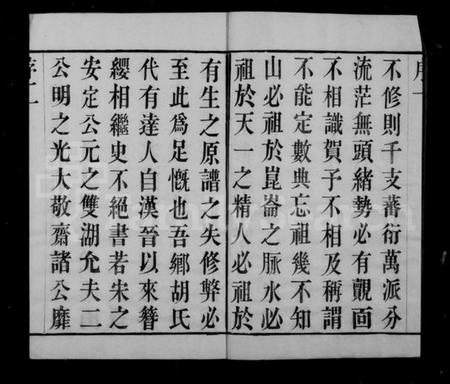 序一
不修則千支蕃衍萬派分
流茫無頭緒勢必有覿面
不相識賀予不相及稱謂
不能定數典忘祖幾不知
山必祖於崑崙之脈水必
祖於天一之精人必祖於
有生之原譜之失修弊必
至此為足慨也吾鄉胡氏
代有達人自漢晉以來簪
纓相繼史不絕書若朱之
安定公元之雙湖允夫二
公明之光大敬齋諸公靡
序二